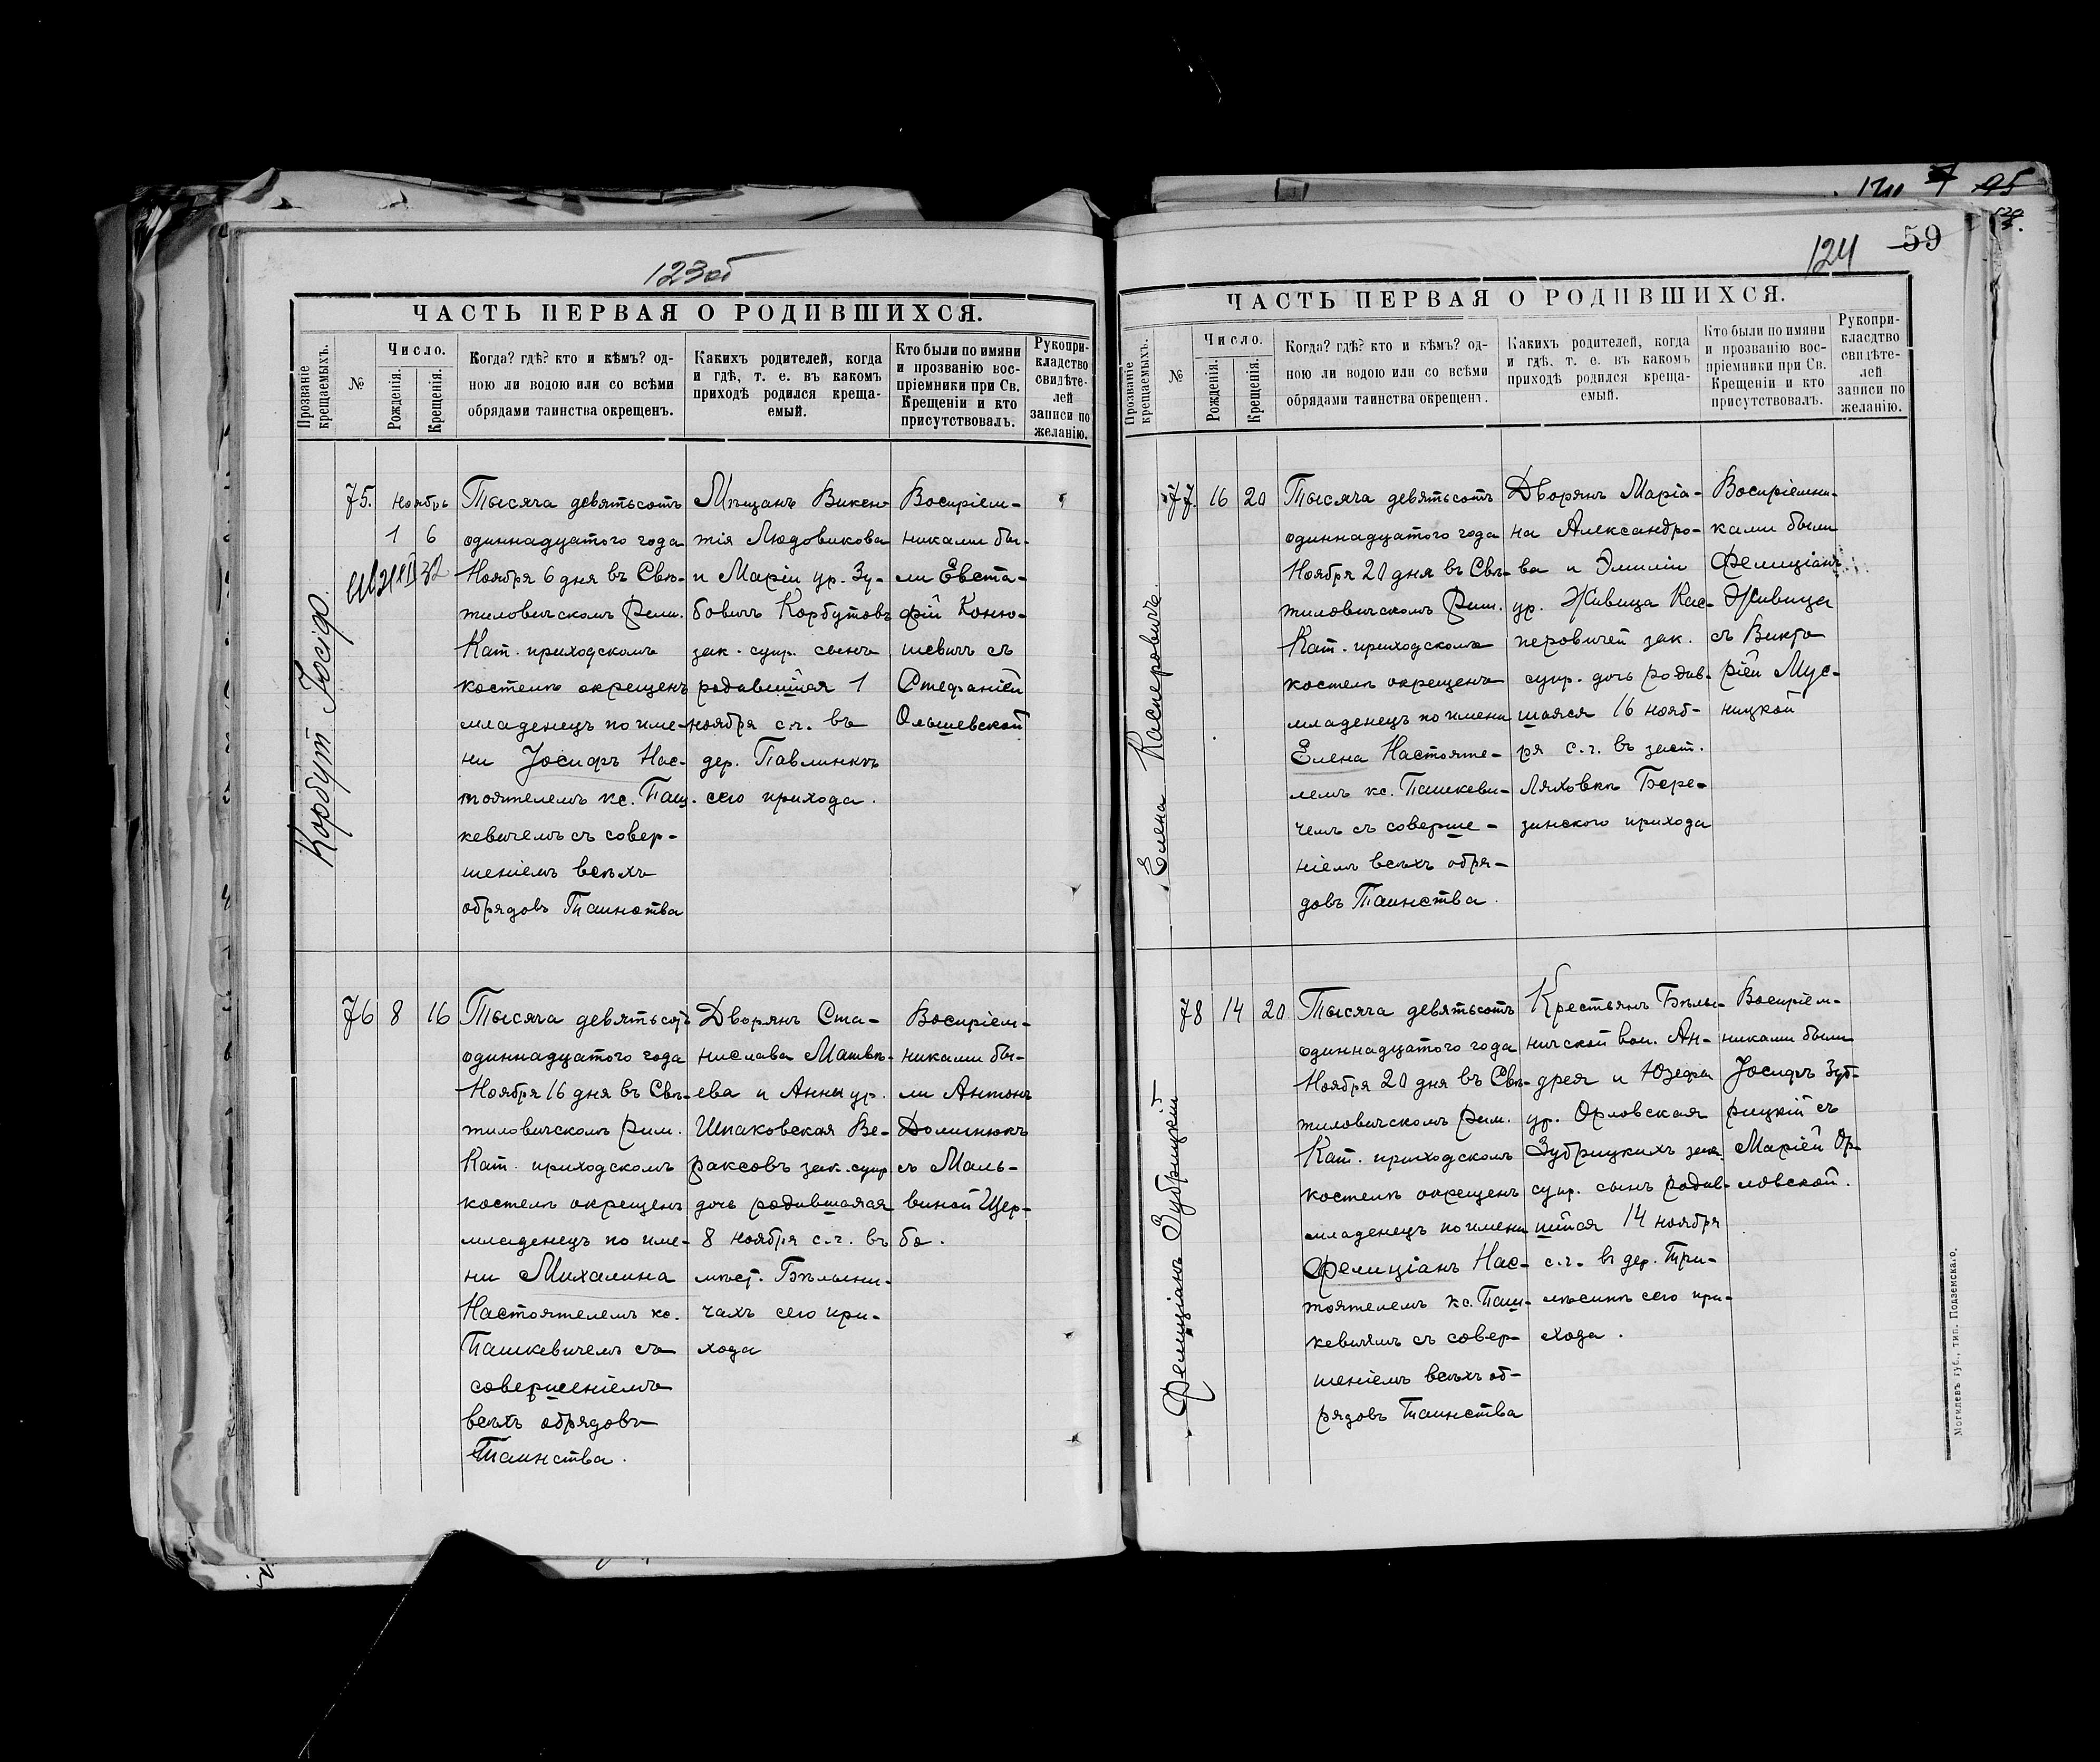 123об
ЧАСТЬ ПЕРВАЯ О РОДИВШИХСЯ.
Прозваніе крещаемыхъ.
№
Число.
Рожденія.
Крещенія.
Когда? гдѣ? кто и кѣмъ? од-
ною ли водою или со всѣми
обрядами таинства окрещенъ.
Какихъ родителей, когда
и гдѣ, т. е. въ какомъ
приходѣ родился креща-
емый.
Кто были по имяни
и прозванію вос-
пріемники при Св.
Крещеніи и кто
присутствовалъ.
Рукопри-
кладство
свидѣте-
лей
записи по
желанію.
Корбут Іосіф.
75.
Ноябрь
1 6
Тысяча девятьсотъ
одиннадцатого года
Ноября 6 дня въ Свѣ-
тиловичском Рим.
Кат. приходскомъ
костелѣ окрещенъ
младенецъ по име-
ни Јосифъ Нас-
тоятелемъ кс. Паш-
кевичемъ съ совер-
шеніемъ всѣхъ
обрядовъ Таинства
Мѣщанъ Викен-
тія Людовикова
и Маріи ур. Зу-
бовичъ Корбутовъ
зак. супр. сынъ
родившійся 1
ноября с.г. въ
дер. Павлинкѣ
сего прихода.
Воспріем-
никами бы-
ли Евста-
фій Коню-
шевичъ съ
Стефаніей
Ольшевской
76 8 16
Тысяча девятьсотъ
одиннадцатого года
Ноября 16 дня въ Свѣ-
тиловичскомъ Рим.
Кат. приходскомъ
костелѣ окрещенъ
младенецъ по име-
ни Михалина
Настоятелемъ кс.
Пашкевичемъ съ
совершеніемъ
всѣхъ обрядовъ
Таинства.
Дворянъ Ста-
нислава Матвѣ-
ева и Анны ур.
Шпаковская Ве-
раксовъ зак. супр
дочь родившаяся
8 ноября с.г. въ
мѣст. Бѣлыни-
чахъ сего при-
хода
Воспріем-
никами бы-
ли Антонъ
Долигнюкъ
съ Маль-
виной Щер-
бо.
124
59
ЧАСТЬ ПЕРВАЯ О РОДИВШИХСЯ.
Прозваніе крещаемыхъ.
№
Число.
Рожденія.
Крещенія.
Когда? гдѣ? кто и кѣмъ? од-
ною ли водою или со всѣми
обрядами таинства окрещенъ.
Какихъ родителей, когда
и гдѣ, т. е. въ какомъ
приходѣ родился креща-
емый.
Кто были по имяни
и прозванію вос-
пріемники при Св.
Крещеніи и кто
присутствовалъ.
Рукопри-
класдтво
свидѣте-
лей
записи по
желанію.
Елена Касперовичъ
77. 16 20
Тысяча девятьсотъ
одиннадцатого года
Ноября 20 дня въ Свѣ-
тиловичскомъ Рим.
Кат. приходскомъ
костелѣ окрещенъ
младенецъ по имени
Елена Настояте-
лемъ кс. Пашкеви-
чемъ съ соверше-
ніемъ всѣхъ обря-
довъ Таинства.
Дворянъ Маріа-
на Александро-
ва и Эмиліи
ур. Живица Кас-
перовичей зак.
супр. дочь родив-
шаяся 16 нояб-
ря с.г. въ заст.
Ляховкѣ Бере-
зинского прихода
Воспріемни-
ками были
Фелиціанъ
Живица
съ Викто
ріей Мус-
ницкой
Фелиціанъ Зубрицкій
78 14 20
Тысяча девятьсотъ
одиннадцатого года
Ноября 20 дня въ Свѣ-
тиловичскомъ Рим.
Кат. приходскомъ
костелѣ окрещенъ
младенецъ по имени
Фелиціанъ Нас-
тоятелемъ кс. Паш-
кевичемъ съ совер-
шеніемъ всѣхъ об-
рядовъ Таинства
Крестьянъ Бѣлы-
ничской вол. Ан-
дрея и Юзефы
ур. Орловская
Зубрицкихъ зак.
супр. сынъ родив-
шійся 14 ноября
с.г. въ дер. Три-
лѣсинѣ сего при-
хода.
Воспріем-
никами были
Јосифъ Зуб-
рицкій съ
Маріей Ор-
ловской.
Могилевъ губ., тип. Подземскаго.